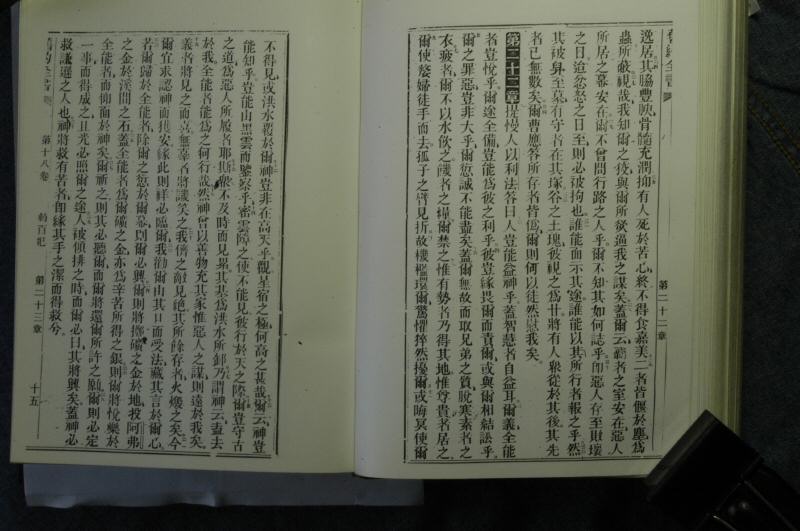 第二十一章
逸居其脇豐腴骨髓充潤抑有人死於苦心終不得食嘉美二者皆偃於塵爲
蟲所蔽視哉我知爾之伎與爾所欲逼我之謀矣蓋爾云霸者之室安在惡人
所居之幕安在爾不曾問行路之人乎爾不知其如何誌乎卽惡人存至敗壞
之日迨忿怒之日至則必被拘也誰能面示其途誰能以其所行者報之乎然
其被舁至墓有守者在其塚谷之土塊彼視之爲甘將有人衆從於其後其先
者已無數矣爾曹應答所存者皆僞爾則何以徒然慰我矣
第二十二章提慢人以利法答曰人豈能益神乎蓋智慧者自益耳爾義全能
者豈悅乎爾途全備豈能爲彼之利乎彼豈緣畏爾而責爾或與爾相結訟乎
爾之罪惡豈非大乎爾愆誠不能盡矣蓋爾無故而取兄弟之質脫寒素者之
衣疲者爾不以水飲之饑者之糧爾禁之惟有勢者乃得其地惟尊貴者居之
爾使嫠婦徒手而去孤子之臂見折故機檻環爾驚懼猝然擾爾或晦冥使爾
不得見或洪水覆於爾神豈非在高天乎觀星宿之極何高之甚哉爾云神豈
能知乎豈能由黑雲而鑒察乎密雲障之使不能見彼行於天之際爾豈守古
之道爲惡人所履者耶斯衆不及時而見累其基爲洪水所卸乃謂神云盍去
於我全能者能爲之何行哉然神曾以善物充其家惟惡人之謀則遠於我矣
義者將見之而喜無辜者將譏笑之我儕之敵見絕其所餘存者火燬之矣今
爾宜求認神而獲安緣此則祥必臨爾我勸爾由其口而受法藏其言於爾心
若爾歸於全能者除爾之愆於爾幕則爾必興爾則將擲礦之金於地投阿弗
之金於溪間之石蓋全能者爲爾礦之金亦爲辛苦所得之銀則爾將悅樂於
全能者而仰面於神矣爾祈之則其必聽爾而爾將還爾所許之願爾則必定
一事而得成之且光必照爾之途人被傾排之時而爾必曰其將興矣蓋神必
救謙遜之人也神將救有苦者卽緣其手之潔而得救兮
第十八卷
約百記
第二十三章
十五